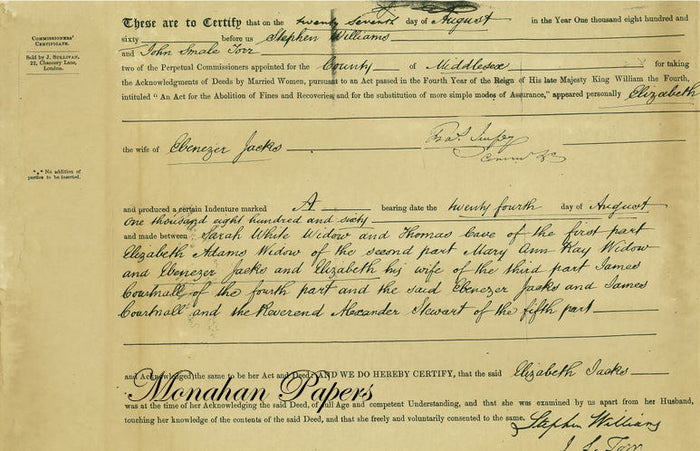 COMMISSIONERS'
CERTIFICATE.
Sold by J. SULLIVAN,
22, Chancery Lane,
London.
These are to Certify that on the twenty seventh day of August in the Year One thousand eight hundred and
sixty before us Stephen Williams
and John Smale Torr
two of the Perpetual Commissioners appointed for the County of Middlesex for taking
the Acknowledgments of Deeds by Married Women, pursuant to an Act passed in the Fourth Year of the Reign of His late Majesty King William the Fourth,
intituled "An Act for the Abolition of Fines and Recoveries and for the substitution of more simple modes of Assurance," appeared personally Elizabeth
the wife of Ebenezer Jacks
*** No addition of
parties to be inserted.
and produced a certain Indenture marked A bearing date the twenty fourth day of August
one thousand eight hundred and sixty
and made between Sarah White Widow and Thomas Cave of the first part
Elizabeth Adams Widow of the second part Mary Ann Kay Widow
and Ebenezer Jacks and Elizabeth his wife of the third part James
Courtnall of the fourth part and the said Ebenezer Jacks and James
Courtnall and the Reverend Alexander Stewart of the fifth part
and Acknowledged the same to be her Act and Deed: AND WE DO HEREBY CERTIFY, that the said Elizabeth Jackes
Monahan Papers
was at the time of her Acknowledging the said Deed, of full Age and competent Understanding, and that she was examined by us apart from her Husband,
touching her knowledge of the contents of the said Deed, and that she freely and voluntarily consented to the same.
Stephen Williams
J. S. Torr